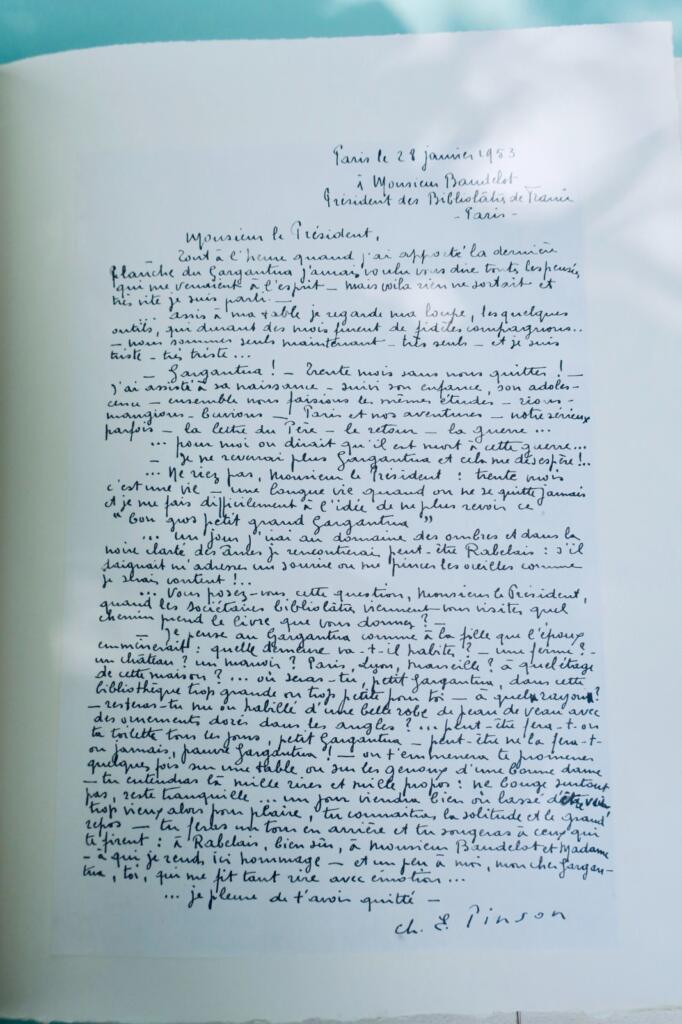 Paris le 28 janvier 1953
à Monsieur Baudelot
Président des Bibliolâtres de France
- Paris -
Monsieur le Président,
Tout à l'heure quand j'ai apporté la dernière
planche du Gargantua j'aurais voulu vous dire toutes les pensées
qui me venaient à l'esprit — mais voilà rien ne sortait et
très vite je suis parti. —
... assis à ma table je regarde ma loupe, les quelques
outils, qui durant des mois furent de fidèles compagnons..
— nous sommes seuls maintenant — très seuls — et je suis
triste — très triste ...
— Gargantua ! — Trente mois sans nous quitter ! —
J'ai assisté à sa naissance — suivi son enfance, son adoles-
cence — ensemble nous faisions les mêmes études — rions -
mangions - buvions — Paris et nos aventures — notre sérieux
parfois — la lettre du Père — le retour — la guerre ...
... pour moi on dirait qu'il est mort à cette guerre...
— Je ne reverrai plus Gargantua et cela me désespère !..
... Ne riez pas, Monsieur le Président : trente mois
c'est une vie — une longue vie quand on ne se quitte jamais
et je me fais difficilement à l'idée de ne plus revoir ce
" bon gros petit grand Gargantua "
... un jour j'irai au domaine des ombres et dans la
noire clarté des âmes je rencontrerai peut-être Rabelais : s'il
daignait m'adresser un sourire ou me pincer les oreilles comme
je serais content !..
... Vous posez-vous cette question, Monsieur le Président,
quand les sociétaires bibliolâtres viennent vous visiter quel
chemin prend le livre que vous donnez ? —
— Je pense au Gargantua comme à la fille que l'époux
emmènerait : quelle demeure va-t-il habiter ? — une ferme ? -
un château ? un manoir ? Paris, Lyon, Marseille ? à quel étage
de cette maison ? ... où seras-tu, petit Gargantua, dans cette
bibliothèque trop grande ou trop petite pour toi — à quel rayon ?
— resteras-tu nu ou habillé d'une belle robe de peau de veau avec
des ornements dorés dans les angles ? ... peut-être fera-t-on
ta toilette tous les jours, petit Gargantua — peut-être ne la fera-t-
on jamais, pauvre Gargantua ! — on t'emmenera te promener
quelques fois sur une table ou sur les genoux d'une bonne dame
— tu entendras là mille rires et mille propos : ne bouge surtout
pas, reste tranquille ... un jour viendra bien où lassé d'être
trop vieux alors pour plaire, tu connaîtras la solitude et le grand
repos — tu feras un tour en arrière et tu songeras à ceux qui
te firent : à Rabelais, bien sûr, à Monsieur Baudelot et Madame
- à qui je rends ici hommage — et un peu à moi, mon cher Gargan-
tua, toi, qui me fit tant rire avec émotion ...
... je pleure de t'avoir quitté —
Ch. E. Pinson